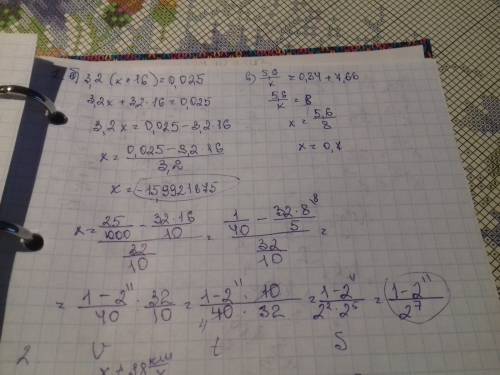 б) 3,2 (x+16)=0,025
3,2x+3,2·16=0,025
3,2x=0,025-3,2·16
x= (0,025-3,2·16)/3,2
x= -15,9921875
в) 5,6/x =0,34+7,66
5,6/x = 8
x= 5,6/8
x= 0,7
x= (25/1000 - 32·16/10)/(32/10) = (1/40 - 32·8/5)/(32/10) =
= (1-2^11)/40 · 32/10 = (1-2^11)/40 · 10/32 = (1-2^11)/(2^2·2^5) = (1-2^11)/2^7
2 V t S